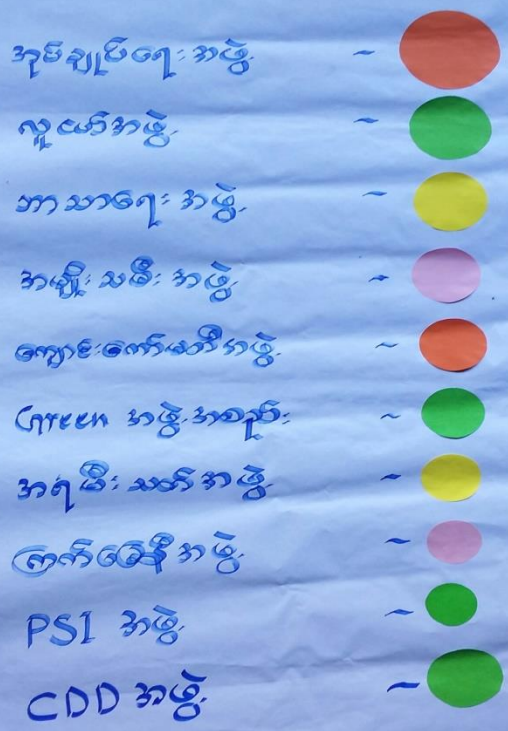 အုပ်ချုပ်ရေးအဖွဲ့ -
လူငယ်အဖွဲ့ -
ဘာသာရေးအဖွဲ့ -
အမျိုးသမီးအဖွဲ့ -
ကျောင်းကော်မတီအဖွဲ့ -
Green အဖွဲ့အစည်း -
အရံမီးသတ်အဖွဲ့ -
ကြက်ခြေနီအဖွဲ့ -
PSI အဖွဲ့ -
CDD အဖွဲ့ -